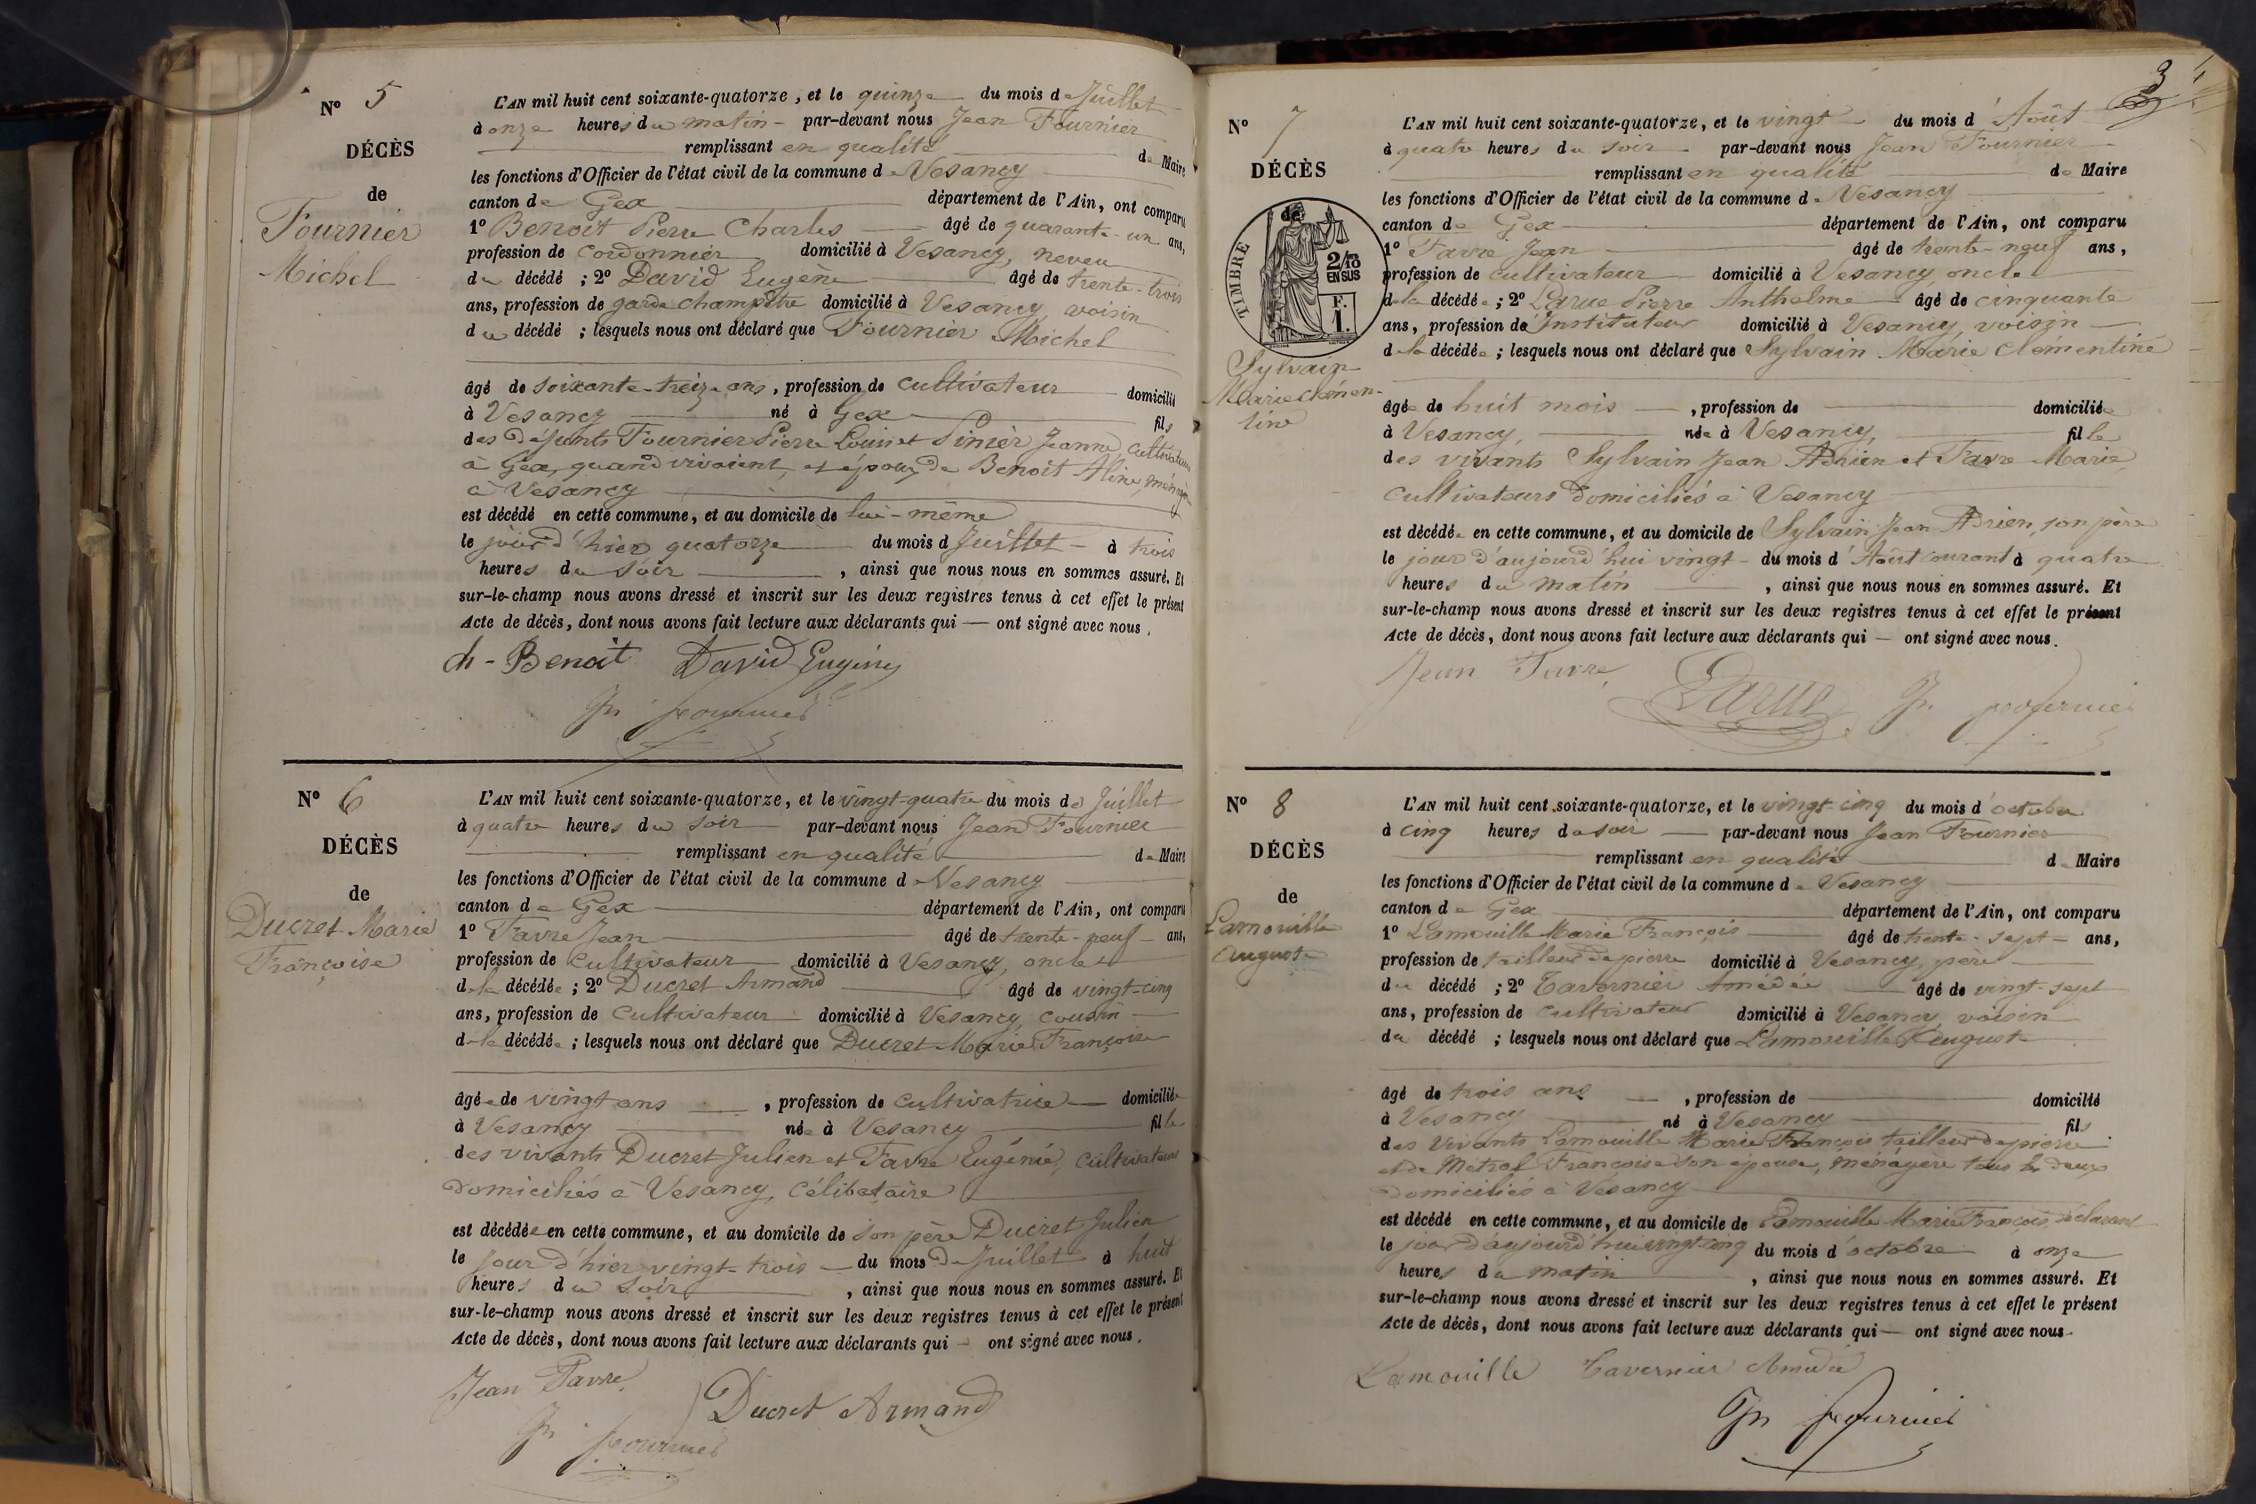 N° 5
DÉCÈS
de
Fournier
Michel
L'AN mil huit cent soixante-quatorze, et le quinze du mois de Juillet
à onze heures du matin par-devant nous Jean Fournier
remplissant en qualité de Maire
les fonctions d'Officier de l'état civil de la commune de Vesancy
canton de Gex département de l'Ain, ont comparu
1° Benoit Pierre Charles âgé de quarante-un ans,
profession de cordonnier domicilié à Vesancy, neveu
du décédé ; 2° David Eugène âgé de trente-trois
ans, profession de garde champêtre domicilié à Vesancy, voisin
du décédé ; lesquels nous ont déclaré que Fournier Michel
âgé de soixante-treize ans, profession de cultivateur domicilié
à Vesancy né à Gex fils
des défunts Fournier Pierre Louis et Pinier Jeanne, cultivateurs
à Gex, quand vivaient, et époux de Benoit Aline, ménagère
à Vesancy
est décédé en cette commune, et au domicile de lui-même
le jour d'hier quatorze du mois d Juillet à trois
heures du soir, ainsi que nous nous en sommes assuré. Et
sur-le-champ nous avons dressé et inscrit sur les deux registres tenus à cet effet le présent
Acte de décès, dont nous avons fait lecture aux déclarants qui — ont signé avec nous.
ch - Benoit David Eugène
Jn fournier
N° 6
DÉCÈS
de
Ducret Marie
Françoise
L'AN mil huit cent soixante-quatorze, et le vingt-quatre du mois de Juillet
à quatre heures du soir par-devant nous Jean Fournier
remplissant en qualité de Maire
les fonctions d'Officier de l'état civil de la commune de Vesancy
canton de Gex département de l'Ain, ont comparu
1° Favre Jean âgé de trente-neuf ans,
profession de cultivateur domicilié à Vesancy, oncle
de la décédée ; 2° Ducret Armand âgé de vingt-cinq
ans, profession de cultivateur domicilié à Vesancy cousin
de la décédée ; lesquels nous ont déclaré que Ducret Marie Françoise
âgée de vingt ans, profession de cultivatrice domiciliée
à Vesancy née à Vesancy fille
des vivants Ducret Julien et Favre Eugénie, cultivateurs
domiciliés à Vesancy, célibataire
est décédée en cette commune, et au domicile de son père Ducret Julien
le jour d'hier vingt-trois du mois de Juillet à huit
heures du soir, ainsi que nous nous en sommes assuré. Et
sur-le-champ nous avons dressé et inscrit sur les deux registres tenus à cet effet le présent
Acte de décès, dont nous avons fait lecture aux déclarants qui — ont signé avec nous.
Jean Favre
Ducret Armand
Jn fournier
3
N° 7
DÉCÈS
de
TIMBRE
2/10
EN SUS
F.
1.
Sylvain
Marie Clémen-
tine
L'AN mil huit cent soixante-quatorze, et le vingt du mois d'Août
à quatre heures du soir par-devant nous Jean Fournier
remplissant en qualité de Maire
les fonctions d'Officier de l'état civil de la commune de Vesancy
canton de Gex département de l'Ain, ont comparu
1° Favre Jean âgé de trente-neuf ans,
profession de cultivateur domicilié à Vesancy oncle
de la décédée ; 2° Larue Pierre Anthelme âgé de cinquante
ans, profession de Instituteur domicilié à Vesancy, voisin
de la décédée ; lesquels nous ont déclaré que Sylvain Marie Clémentine
âgée de huit mois, profession de domiciliée
à Vesancy, née à Vesancy, fille
des vivants Sylvain Jean Adrien et Favre Marie,
cultivateurs domiciliés à Vesancy
est décédée en cette commune, et au domicile de Sylvain Jean Adrien, son père
le jour d'aujourd'hui vingt du mois d'Août courant à quatre
heures du matin, ainsi que nous nous en sommes assuré. Et
sur-le-champ nous avons dressé et inscrit sur les deux registres tenus à cet effet le présent
Acte de décès, dont nous avons fait lecture aux déclarants qui — ont signé avec nous.
Jean Favre, Larue Jn fournier
N° 8
DÉCÈS
de
Lamouille
Auguste
L'AN mil huit cent soixante-quatorze, et le vingt-cinq du mois d'octobre
à cinq heures du soir par-devant nous Jean Fournier
remplissant en qualité de Maire
les fonctions d'Officier de l'état civil de la commune de Vesancy
canton de Gex département de l'Ain, ont comparu
1° Lamouille Marie François âgé de trente-sept ans,
profession de tailleur de pierre domicilié à Vesancy, père
du décédé ; 2° Tavernier Amédée âgé de vingt-sept
ans, profession de cultivateur domicilié à Vesancy, voisin
du décédé ; lesquels nous ont déclaré que Lamouille Auguste
âgé de trois ans, profession de domicilié
à Vesancy né à Vesancy fils
des vivants Lamouille Marie François tailleur de pierre
et de Metral Françoise son épouse, ménagère tous les deux
domiciliés à Vesancy
est décédé en cette commune, et au domicile de Lamouille Marie François, déclarant
le jour d'aujourd'hui vingt-cinq du mois d'octobre à onze
heures du matin, ainsi que nous nous en sommes assuré. Et
sur-le-champ nous avons dressé et inscrit sur les deux registres tenus à cet effet le présent
Acte de décès, dont nous avons fait lecture aux déclarants qui — ont signé avec nous.
Lamouille Tavernier Amédé
Jn fournier